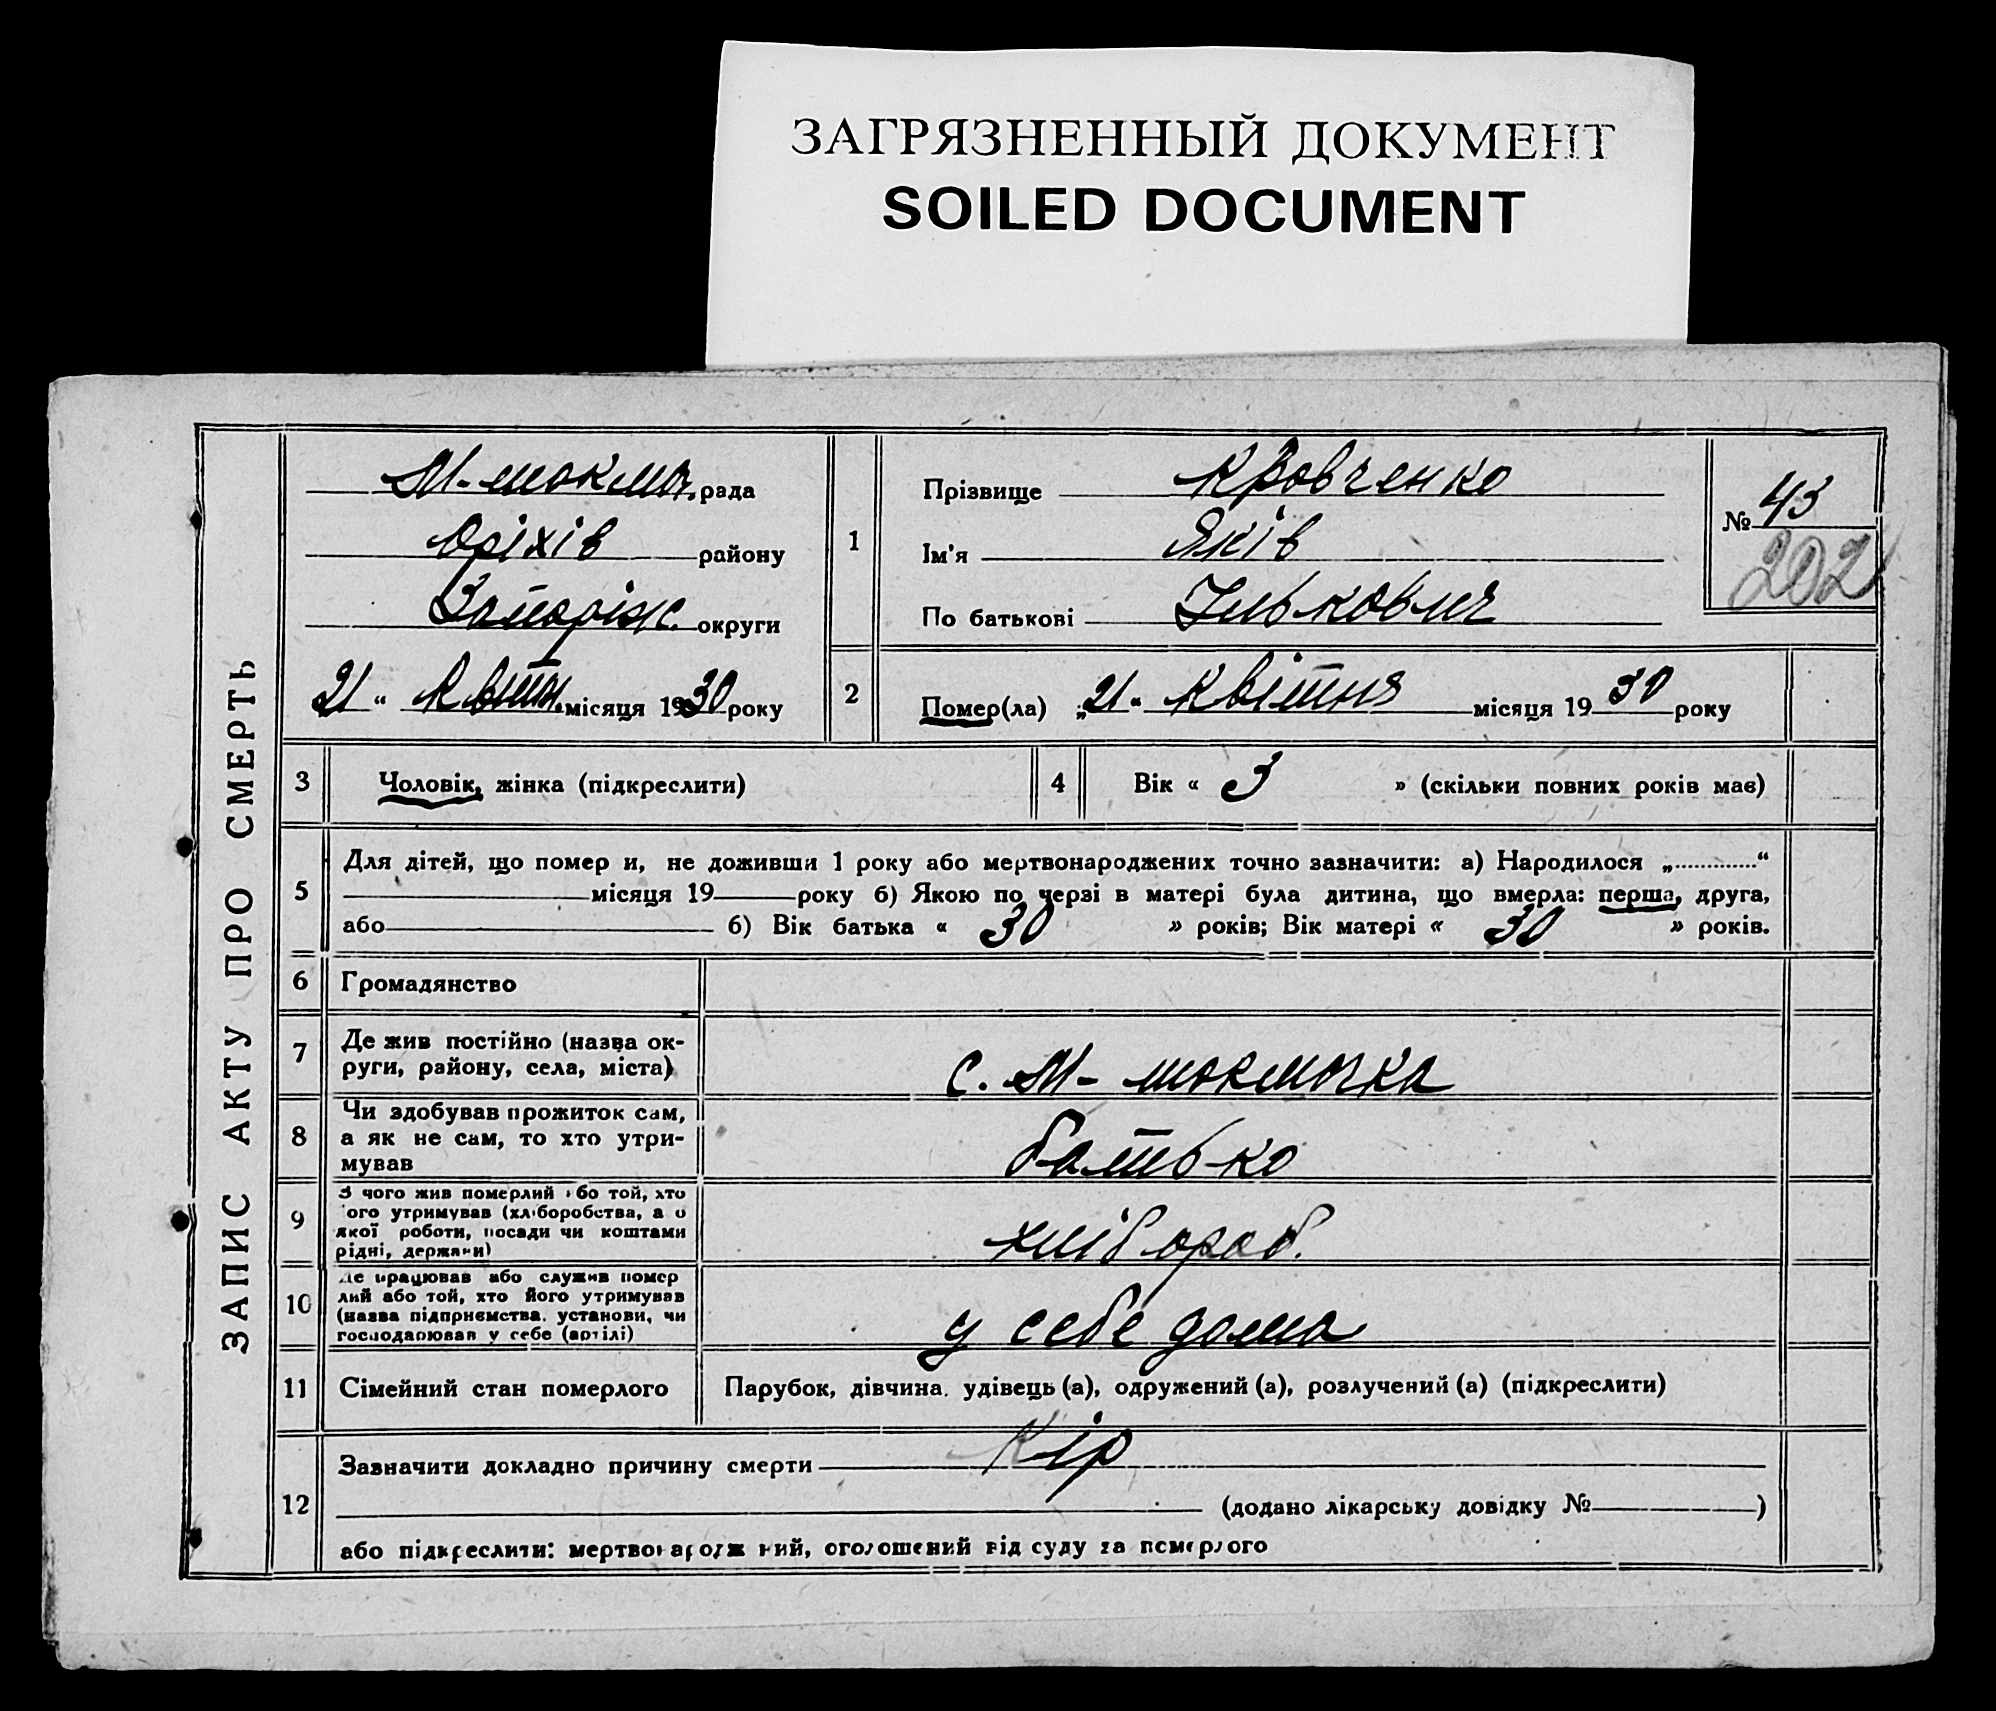 ЗАГРЯЗНЕННЫЙ ДОКУМЕНТ
SOILED DOCUMENT
ЗАПИС АКТУ ПРО СМЕРТЬ
М-токмач. рада
Оріхів району
Запоріж. округи
21 " Квітн. місяця 1930 року
1
Прізвище Кровченко
Ім'я Яків
По батькові
№ 43
202
2
Помер(ла) „21" Квітня місяця 1930 року
3 Чоловік, жінка (підкреслити)
4 Вік « 3 » (скільки повних років має)
5 Для дітей, що помер и, не доживши 1 року або мертвонароджених точно зазначити: а) Народилося „............."
місяця 19 року б) Якою по черзі в матері була дитина, що вмерла: перша, друга,
або б) Вік батька « 30 » років; Вік матері « 30 » років.
6 Громадянство
7 Де жив постійно (назва ок-
руги, району, села, міста)
с. М-токмачка
8 Чи здобував прожиток сам,
а як не сам, то хто утри-
мував
батько
9 З чого жив померлий або той, хто
його утримував (хліборобства, а о
якої роботи, посади чи коштами
рідні, держави)
хлібороб.
10 Де працював або служив помер
лий або той, хто його утримував
(назва підприємства, установи, чи
господарював у себе (артілі)
у себе дома
11 Сімейний стан померлого
Парубок, дівчина, удівець (а), одружений (а), розлучений (а) (підкреслити)
12 Зазначити докладно причину смерти Кір
(додано лікарську довідку № )
або підкреслити: мертвонароджений, оголошений від суду за померлого